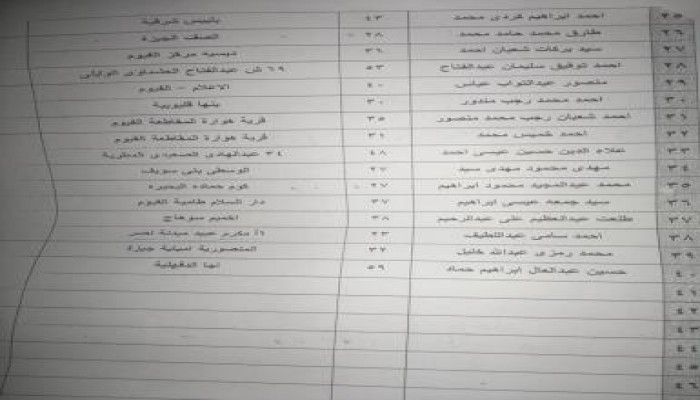 ٢٥ احمد ابراهيم كردى محمد ٤٣ بلبيس شرقية
٢٦ طارق محمد حامد محمد ٢٨ الصف الجيزة
٢٧ سيد بركات شعبان احمد ٣٦ ديسيه مركز الفيوم
٢٨ احمد توفيق سليمان عبدالفتاح ٥٣ ٦٩ ش عبدالفتاح
٢٩ منصور عبدالتواب عباس ٤٠ الاعلام - الفيوم
٣٠ احمد محمد رجب مندور ٣٠ بنها قليوبية
٣١ احمد شعبان رجب محمد منصور ٣٥ قرية هوارة المقاطعة الفيوم
٣٢ احمد خميس محمد ٣١ قرية هوارة المقاطعة الفيوم
٣٣ علاء الدين حسين عيسى احمد ٤٨ ٣٤ عبدالهادى الصعيدى المطرية
٣٤ مهدى محمود مهدى سيد ٢٧ الوسطى بنى سويف
٣٥ محمد عبدالمجيد محمود ابراهيم ٢٧ كوم حماده البحيره
٣٦ سيد جمعه عيسى ابراهيم ٣٧ دار السلام طامية الفيوم
٣٧ طلعت عبدالعظيم على عبدالرحيم ٣٨ اخميم سوهاج
٣٨ احمد سامى عبداللطيف ٢٣ ٦أ مكرم عبيد مدينة نصر
٣٩ محمد رمزى عبدالله خليل ٣٢ المنصورية امبابة جيزة
٤٠ حسين عبدالعال ابراهيم حماد ٥٩ الدقهلية
٤١
٤٢
٤٣
٤٤
٤٥
٤٦